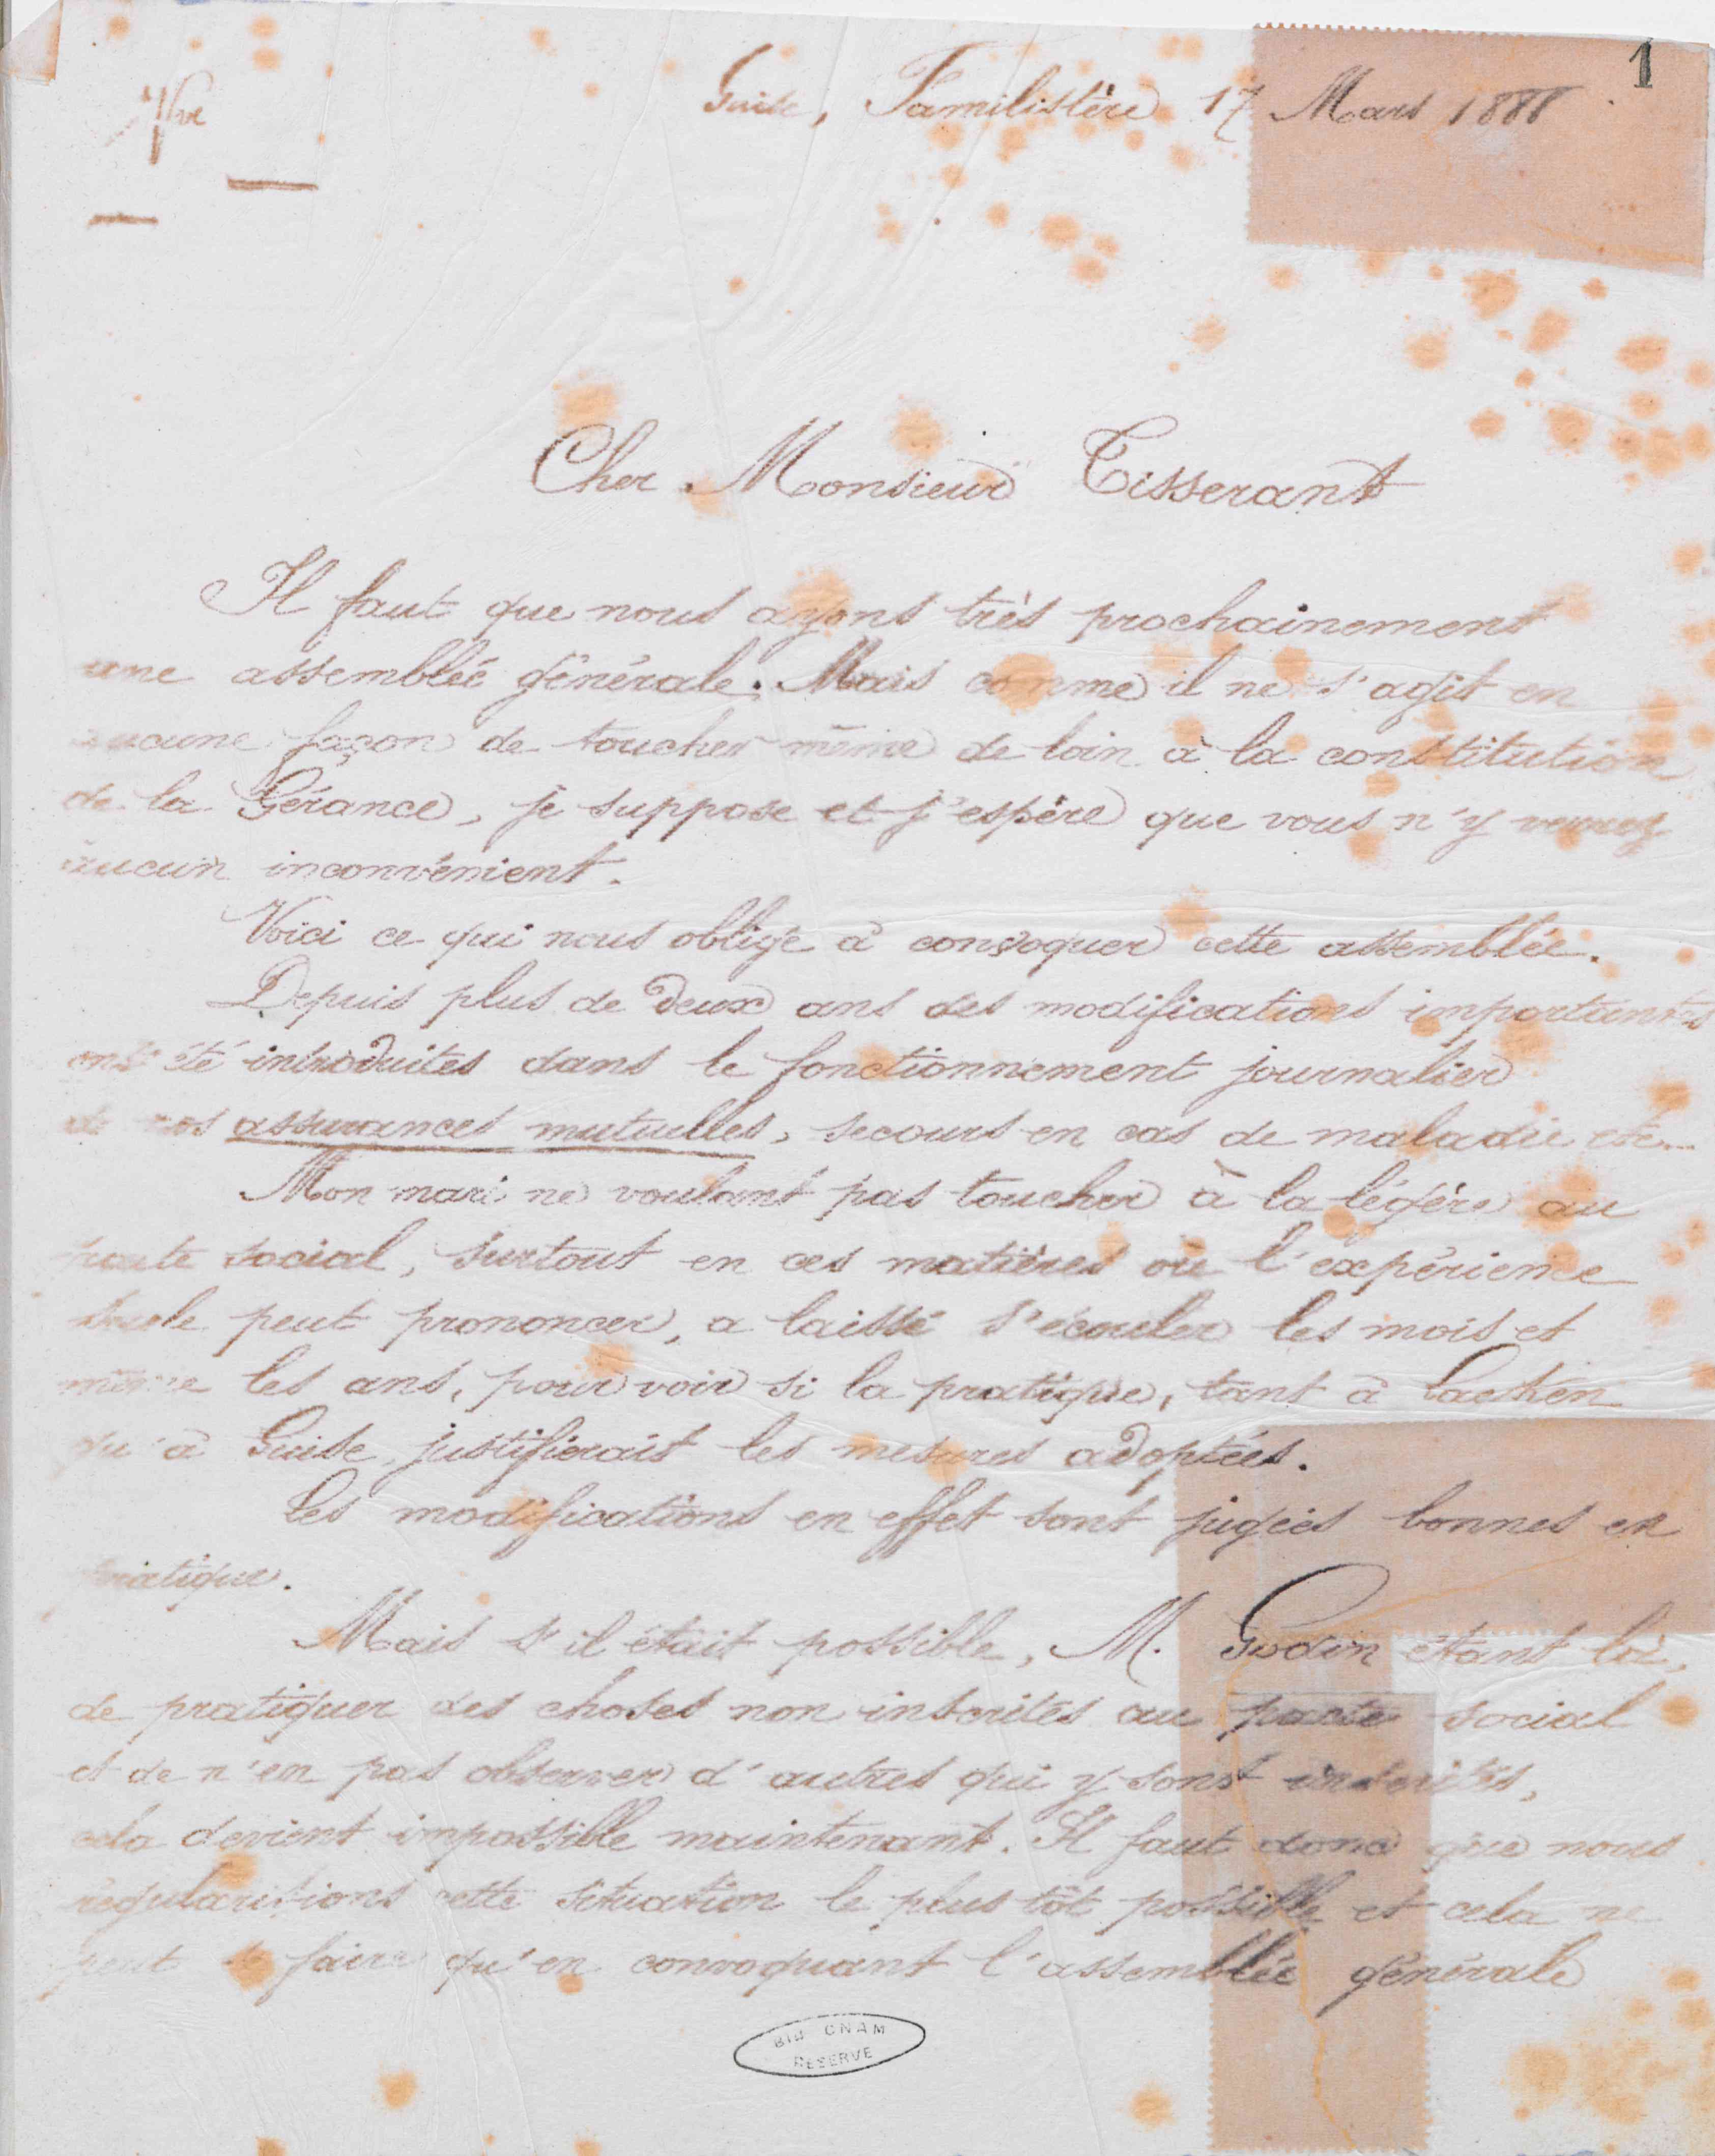 1
Guise, Familistère 17 Mars 1888
Cher Monsieur Tisserant
Il faut que nous ayons très prochainement
une assemblée générale. Mais comme il ne s'agit en
aucune façon de toucher même de loin à la constitution
de la Gérance, je suppose et j'espère que vous n'y verrez
aucun inconvénient.
Voici ce qui nous oblige à convoquer cette assemblée.
Depuis plus de deux ans des modifications importantes
ont été introduites dans le fonctionnement journalier
de nos assurances mutuelles, secours en cas de maladie etc...
Mon mari ne voulant pas toucher à la légère au
pacte social, surtout en ces matières où l'expérience
seule peut prononcer, a laissé s'écouler les mois et
même les ans, pour voir si la pratique, tant à Laeken
qu'à Guise, justifierait les mesures adoptées.
Les modifications en effet sont jugées bonnes en
pratique.
Mais s'il était possible, M. Godin étant là,
de pratiquer des choses non inscrites au pacte social
et de n'en pas observer d'autres qui y sont inscrites,
cela devient impossible maintenant. Il faut donc que nous
régularisions cette situation le plus tôt possible et cela ne
peut se faire qu'en convoquant l'assemblée générale
BIB CNAM
RESERVE